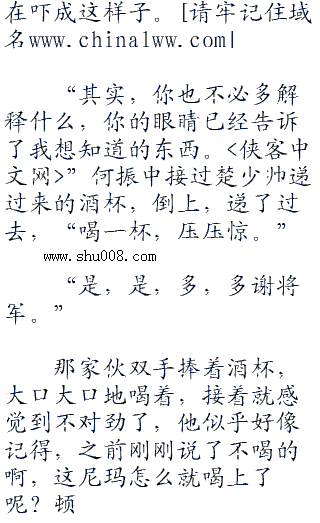 在吓成这样子。[请牢记住域
名www.china1ww.com|
“其实，你也不必多解
释什么，你的眼睛已经告诉
了我想知道的东西。<侠客中
文网>”何振中接过楚少帅递
过来的酒杯，倒上，递了过
去，“喝一杯，压压惊。”
www.shu008.com
“是，是，多，多谢将
军。”
那家伙双手捧着酒杯，
大口大口地喝着，接着就感
觉到不对劲了，他似乎好像
记得，之前刚刚说了不喝的
啊，这尼玛怎么就喝上了
呢？顿